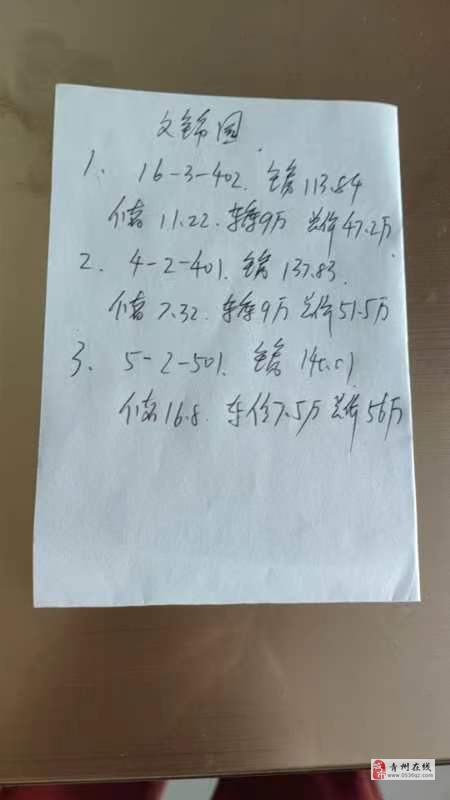 文锦园
1、16-3-402. 主房113.84
储 11.22. 车库9万 总价47.2万
2、4-2-401. 主房137.83.
储 7.32. 车库9万 总价51.5万
3、5-2-501. 主房
储 16.8. 车位7.5万 总价56万
青州在线
www.0536qz.com